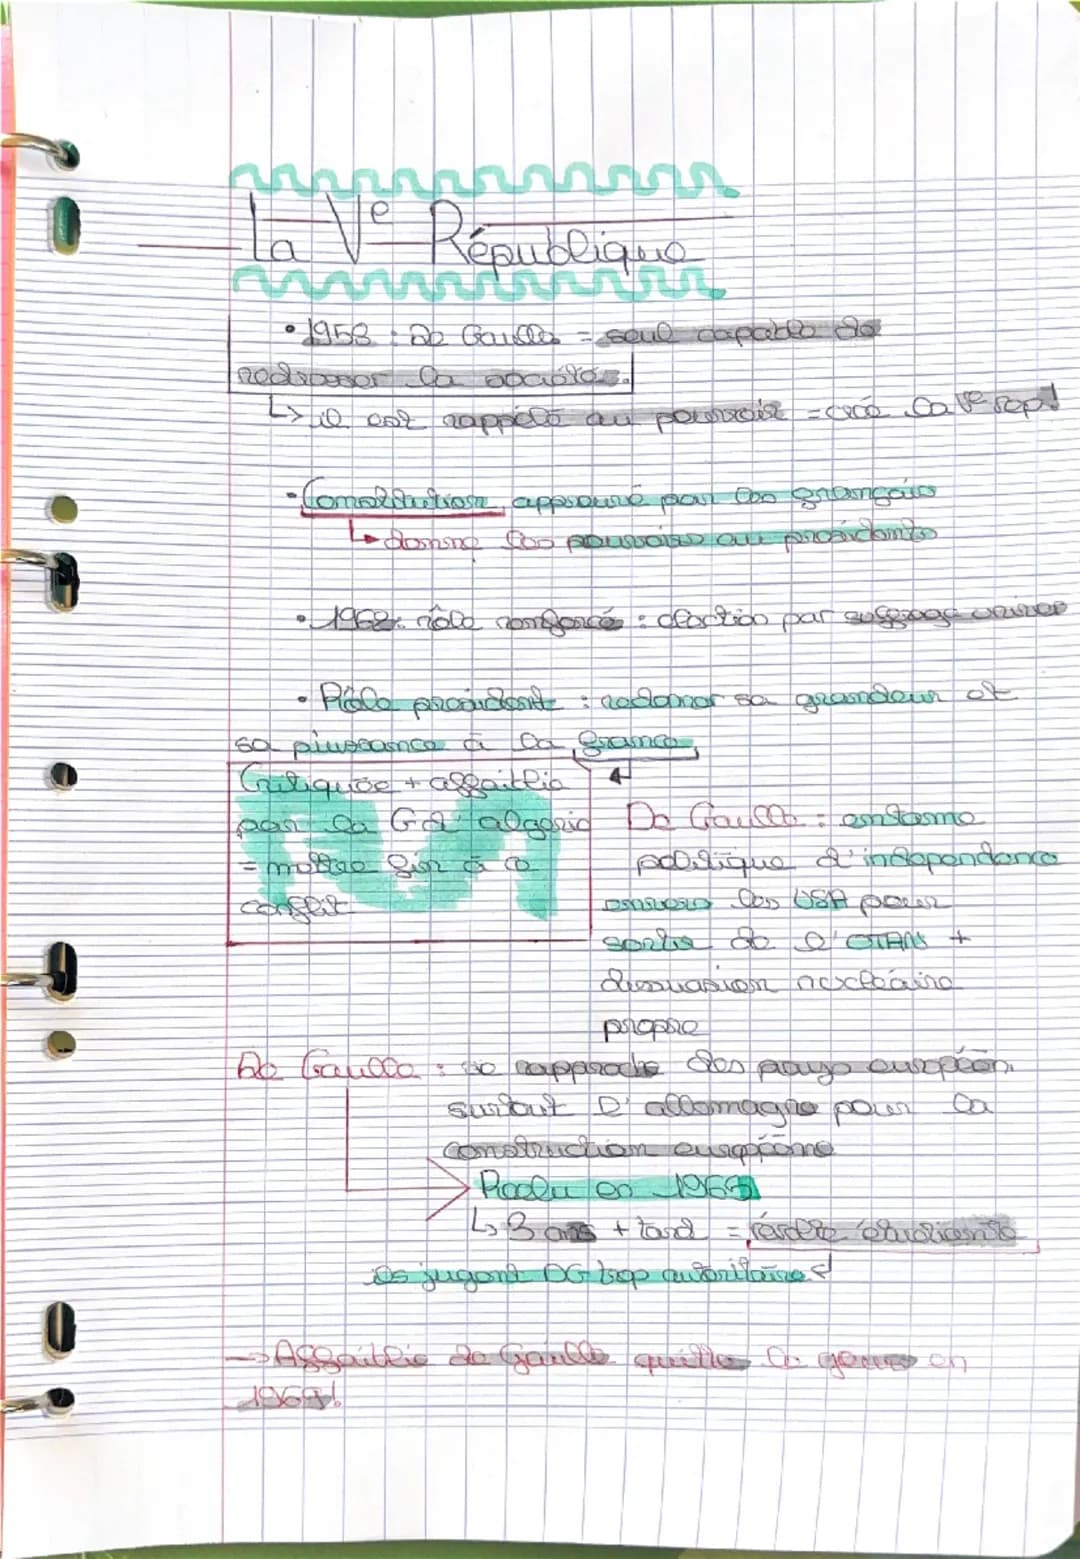 La Ve République
• 1958 : De Gaulle = seul capable de
redresser la société.
↳ il est rappelé au pouvoir = crée la Ve rep!
• Constitution approuvé par les français
↳ donne les pouvoirs au présidents
• 1962: rôle renforcé : élection par suffrage univer
• Rôle président : redonner sa grandeur et
sa piussance à la france
Critiquée + affaiblie
par la Gd algérie
= mettre fin à ce
conflit
De Gaulle : entame
politique d'indépendance
envers les USA pour
sortir de l'OTAN +
dissuasion nucléaire
propre
De Gaulle : se rapproche des pays européen
surtout l'allemagne pour la
construction européene
Réélu en 1965
↳ 3 ans + tard = révolte étudiante
ils jugent DG trop autoritaire
→ Affaiblie de Gaulle quitte le en
1969!